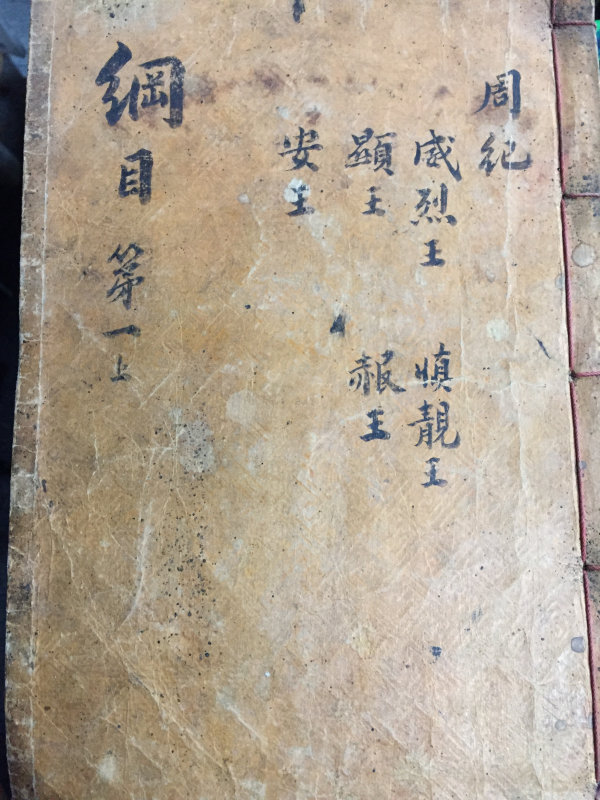 周紀
威烈王 慎靚王
顯王 赧王
安王
綱目 第一上